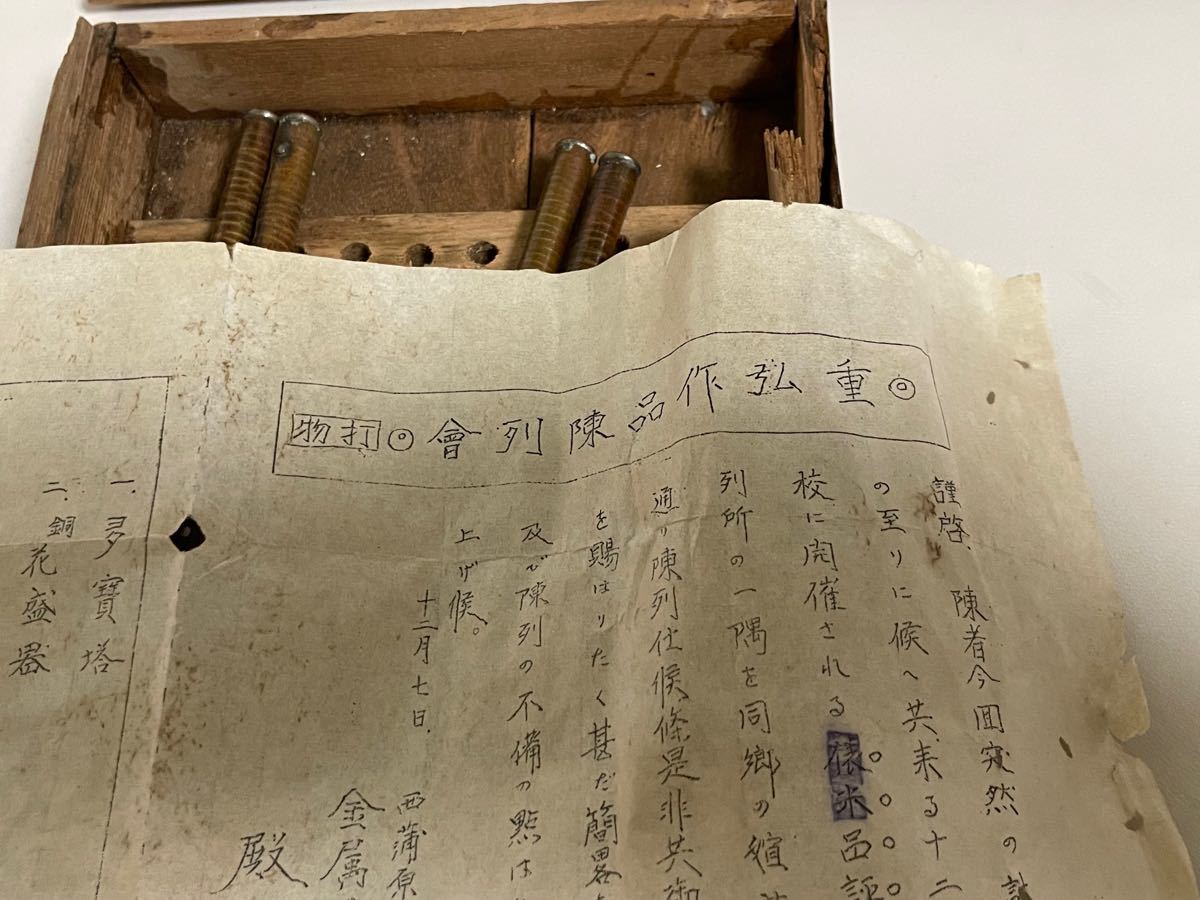 ◎重弘作品陳列會◎打物
謹啓、陳者今囬突然の計
の至りに候へ共、来る十二
校に開催される俵米品評
列所の一隅を同郷の
通り陳列仕候條是非共御
を賜はりたく甚だ簡畧
及び陳列の不備の點は
上げ候。
十二月七日、
西蒲原
金属
殿
一、多寶塔
二、銅花盛器